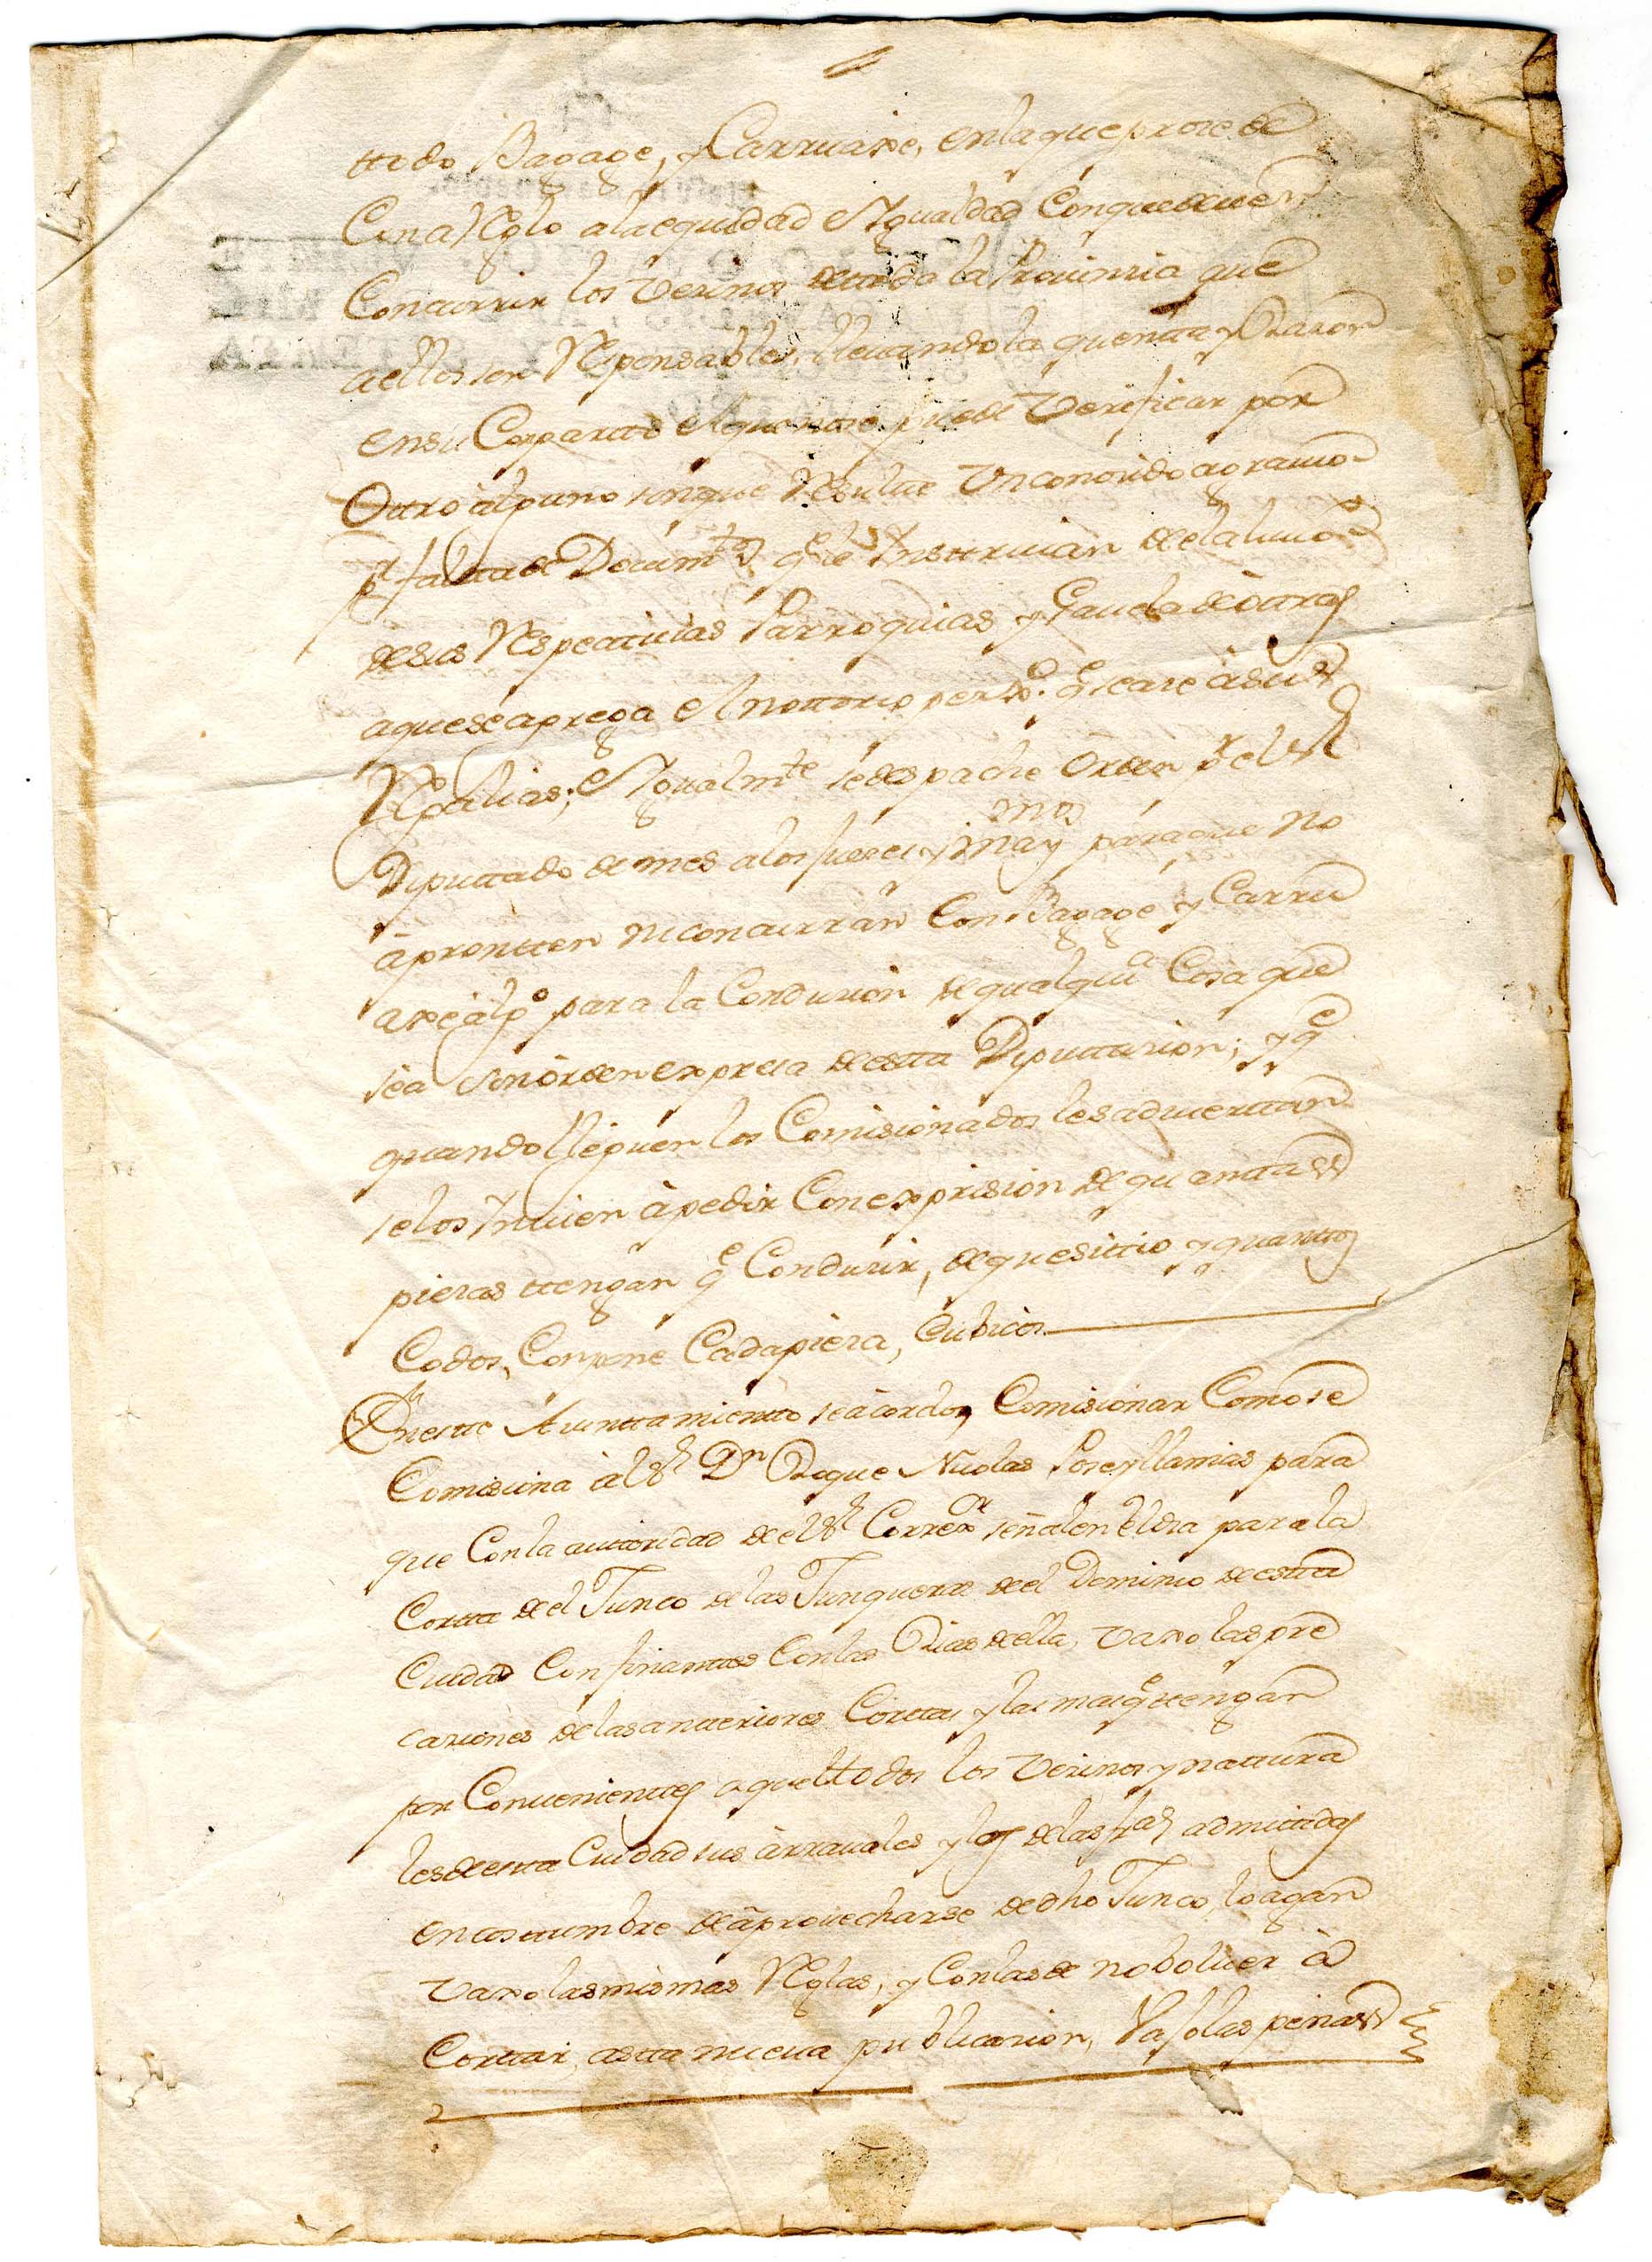 ttodo Bagage, y Carruaxe, en la que procede
con arreglo a la equidad e Igualdad Con que deven
Concurrir los Vecinos de toda la Provincia que
a ellos son Responsables, llevando la quenta y Razon
en su Reparto e Igual no se puede Verificar por
Ottro alguno sin que Resulte Un conocido agravio
pr falta de Documtos qe le Instruian de el
de sus Respectivas Parroquias y Gavela de ottras
a que se aprega el nottorio perxo. qe se aze à sus
Regalias; e Igualmte se despache Orden pr el Sr
Diputtado de mes a los Juezes y maymos para que no
àprontten ni concurràn Con Bagage y Carru
axe àlgo para la Conducion de qualqua Cosa que
sèa sin òrden expresa de estta Diputtacion; y qe
quando lleguen los Comisionados les adviertan
se los Invien à pedir Con expresion de quanttas
piezas ttengan qe Conducir, de que sittio y quanttos
Codos, Conpone Cada pieza, Cubicos
En estte Aiunttamientto se àcordo, Comisionar Como se
Comisiona àl Sr Dn Roque Nicolas Pose y llamas para
que Con la auttoridad de el Sr Correxr señalen el dia para la
Cortta de el Junco de las Junqueras de el Dominio de estta
Ciudad Confinanttes Con las Rias de ella, Vaxo las pre
caziones de las antteriores Corttas y las mas qe ttengan
por Convenienttes a que ttodos los Vecinos y nattura
les de estta Ciudad sus àrravales y los de las fas admittidas
en costtumbre de àprovecharse de dho Junco, lo agan
Vaxo las mismas Reglas, y Con las de no bolver à
Corttar, astta nueva publicazion, Vajo las penas